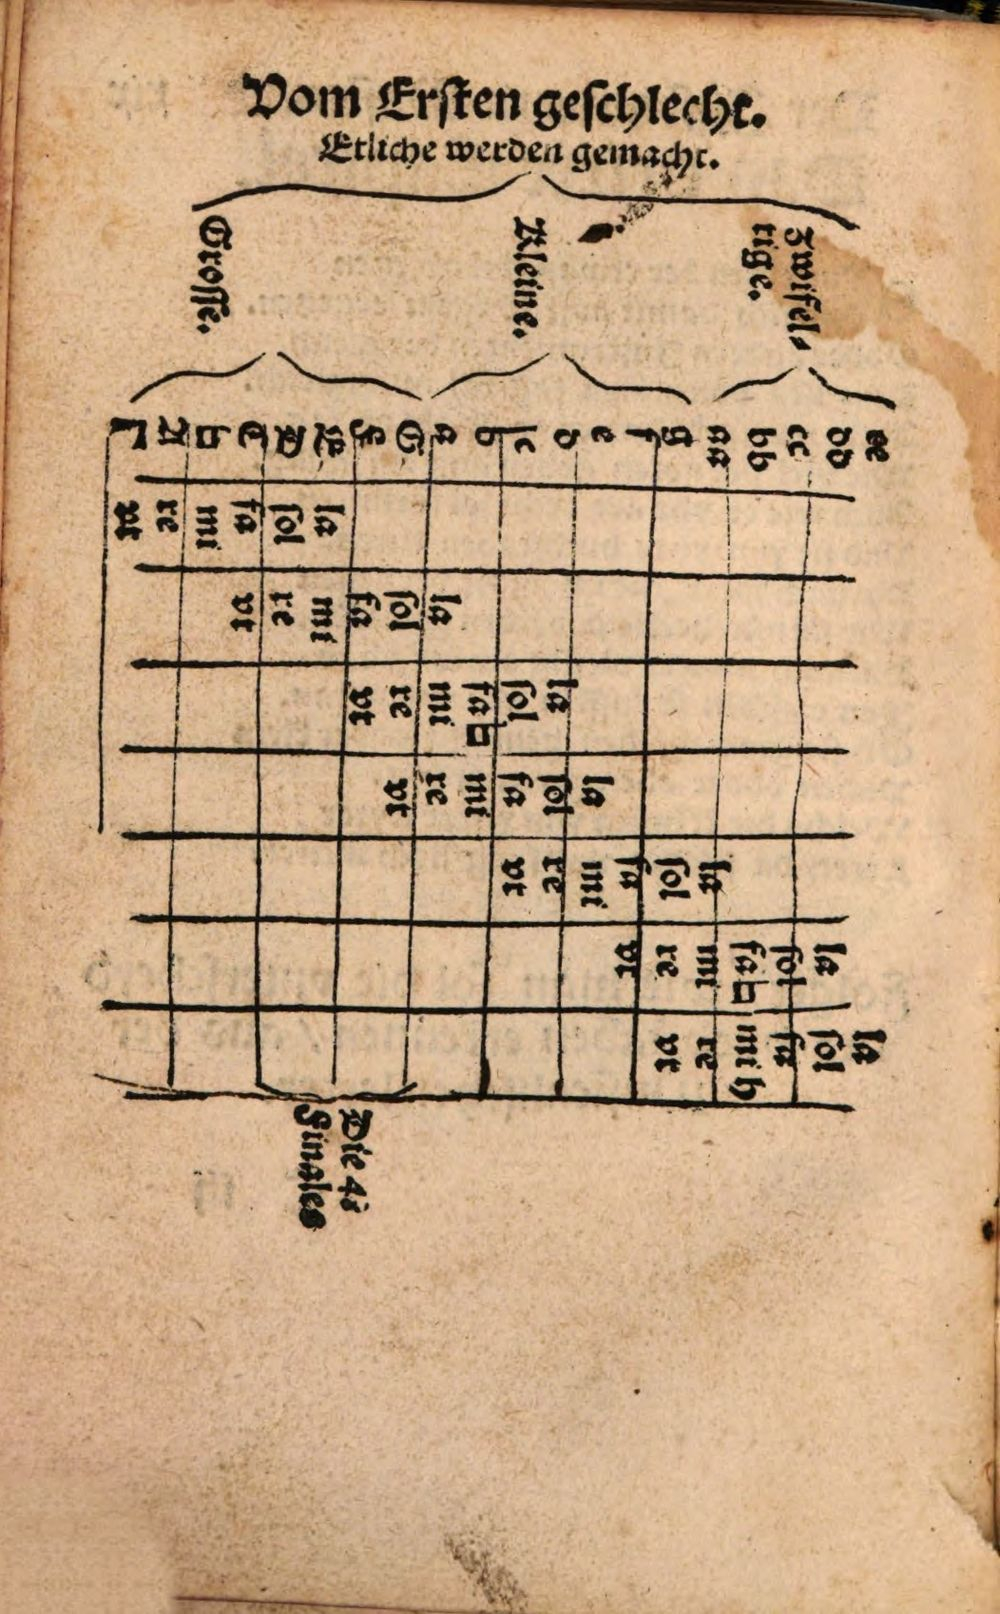 Vom Ersten geschlecht.
Etliche werden gemacht.
Grosse.
Kleine.
Zwifel-
tige.
Γ A B C D E F G a b c d e f g aa bb cc dd ee
vt re mi fa sol la
vt re mi fa sol la
vt re mi fa sol la
vt re mi fa sol la
vt re mi fa sol la
vt re mi fa sol la
vt re mi sol la
Die 4
Finales